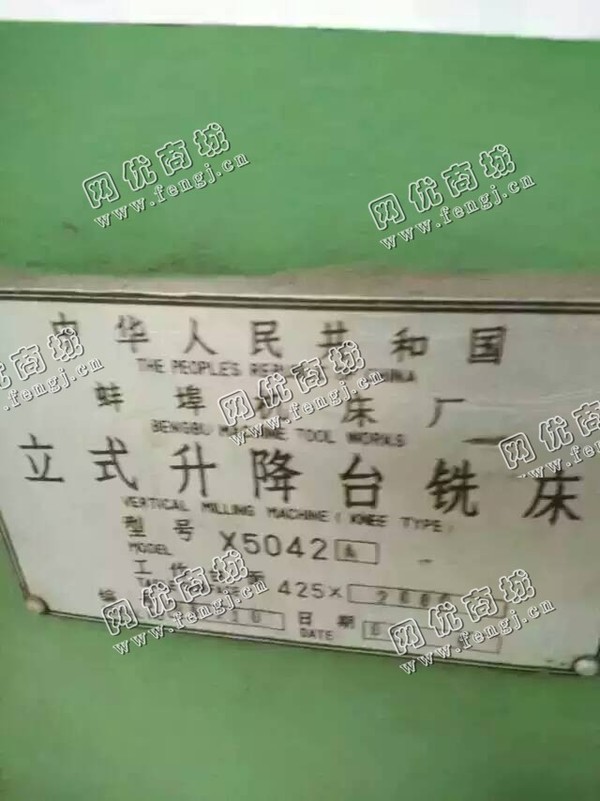 网优商城
www.fengj.cn
网优商城
www.fengj.cn
中华人民共和国
THE PEOPLE'S CHINA
网优商城
蚌埠 床厂
BENGBU MACHINE TOOL WORKS
网优商城
www.fengj.cn
网优商城
www.fengj.cn
立式升降台铣床
VERTICAL MILLING MACHINE (KNEE TYPE)
型号
MODEL X5042 A
工作
425×
日期
DATE
网优商城
www.fengj.cn
网优商城
www.fengj.cn